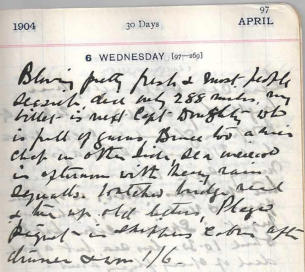 97
1904 30 Days APRIL
6 WEDNESDAY [97—269]
Blowing pretty fresh & most people
seasick, did only 288 miles, my
billet is next Capt Doughty who
is full of guns. Bruce too a nice
chap on other side, sea
in afternoon with heavy rain
squalls. bridge, read
& tore up old letters, Played
Piquet in skippers cabin after
dinner & won 1/6.